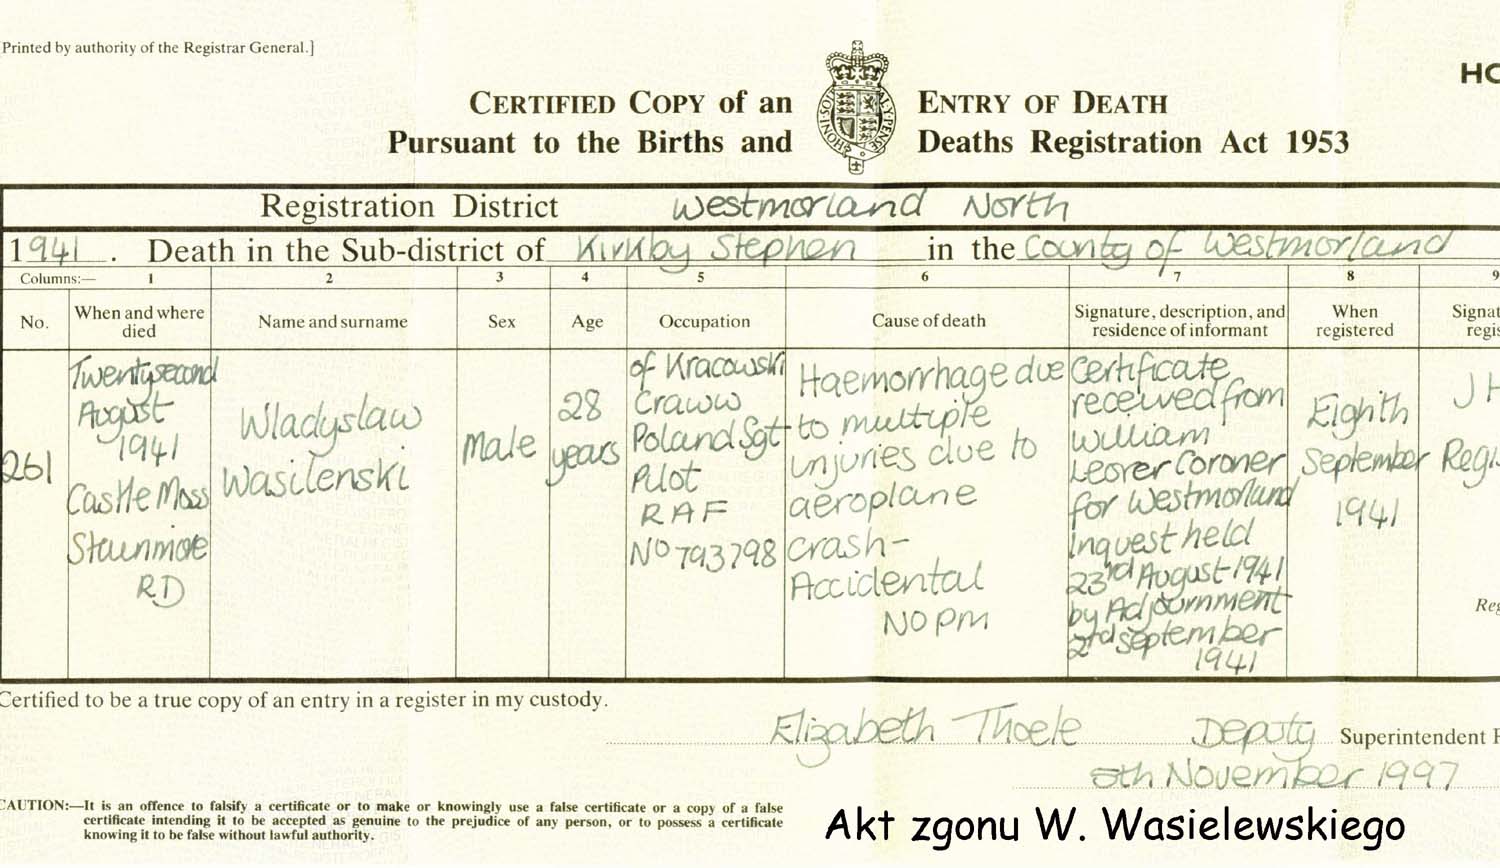 [Printed by authority of the Registrar General.]
HC
CERTIFIED COPY of an ENTRY OF DEATH
Pursuant to the Births and Deaths Registration Act 1953
HONI·SOIT· ·MAL·Y·PENSE
Registration District Westmorland North
1941. Death in the Sub-district of Kirkby Stephen in the County of Westmorland
Columns:— 1 2 3 4 5 6 7 8 9
No.
When and where
died
Name and surname
Sex
Age
Occupation
Cause of death
Signature, description, and
residence of informant
When
registered
Signat
regis
261
Twentysecond
August
1941
Castle Moss
Stainmore
RD
Wladyslaw
Wasilenski
Male
28
years
of Kracowski
Craww
Poland Sgt
Pilot
RAF
No 793798
Haemorrhage due
to multiple
injuries due to
aeroplane
crash-
Accidental
NO PM
Certificate
received from
William
Coroner
for Westmorland
Inquest held
23rd August 1941
by Adjournment
2nd September
1941
Eighth
September
1941
J H
Regis
Reg
Certified to be a true copy of an entry in a register in my custody.
Elizabeth Thoele Deputy Superintendent R
5th November 1997
CAUTION:—It is an offence to falsify a certificate or to make or knowingly use a false certificate or a copy of a false
certificate intending it to be accepted as genuine to the prejudice of any person, or to possess a certificate
knowing it to be false without lawful authority.
Akt zgonu W. Wasielewskiego